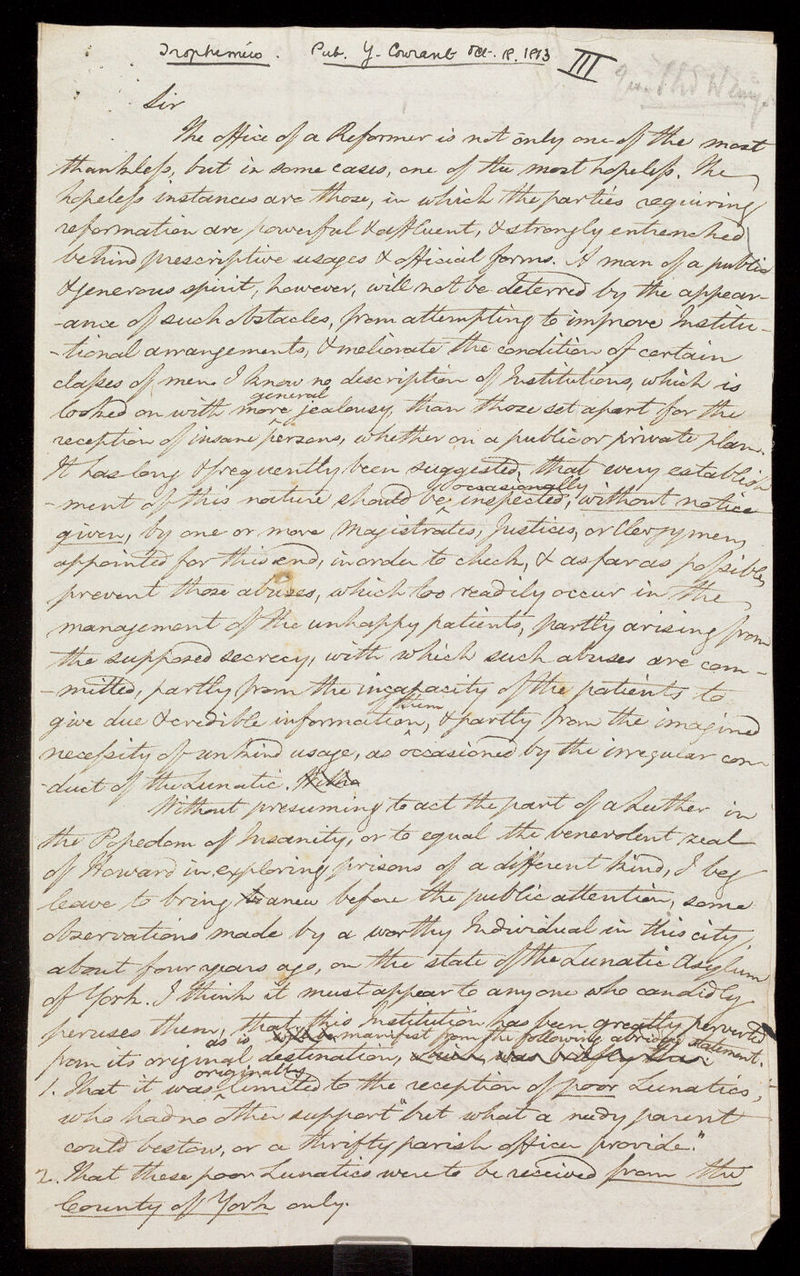 Trophimus. Pub. Y. Courant Oct. 18. 1813 III
Sir
The office of a Reformer is not only one of the most
thankless, but in some cases, one of the most hopeless. The
hopeless instances are those, in which the parties requiring
reformation are powerful & affluent, & strongly entrenched
behind prescriptive usages & official forms. A man of a public
& generous spirit, however, will not be deterred by the appear-
-ance of such obstacles, from attempting to improve Institu-
-tional arrangements, & meliorate the condition of certain
classes of men. I know no description of Institutions, which is
general
looked on with more jealousy, than those set apart for the
reception of insane persons, whether on a public or private plan.
It has long & frequently been suggested, that every establish
occasionally
-ment of this nature should be inspected, without notice
given, by one or more Magistrates, Justices, or Clergymen,
appointed for this end, in order to check, & as far as possible,
prevent those abuses, which too readily occur in the
management of the unhappy patients, partly arising from
the supposed secrecy, with which such abuses are com-
-mitted, partly from the incapacity of the patients to
of them
give due & credible information, & partly from the imagined
necessity of unkind usage, as occasioned by the irregular con-
-duct of the Lunatic.
Without presuming to act the part of a Luther in
the Popedom of Insanity, or to equal the benevolent zeal
of Howard in exploring prisons of a different kind, I beg
leave to bring anew before the public attention, some
observations made by a worthy Individual in this city,
about four years ago, on the state of the Lunatic Asylum
of York. I think it must appear to any one who candidly
peruses them, that this Institution has been greatly perverted
as is manifest from the following abridged statement.
from its original destination,
originally
1. That it was limited to the reception of poor Lunatics,
who had no other support "but what a needy parent
could bestow, or a thrifty parish officer provide."
2. That these poor Lunatics were to be received from the
County of York only.